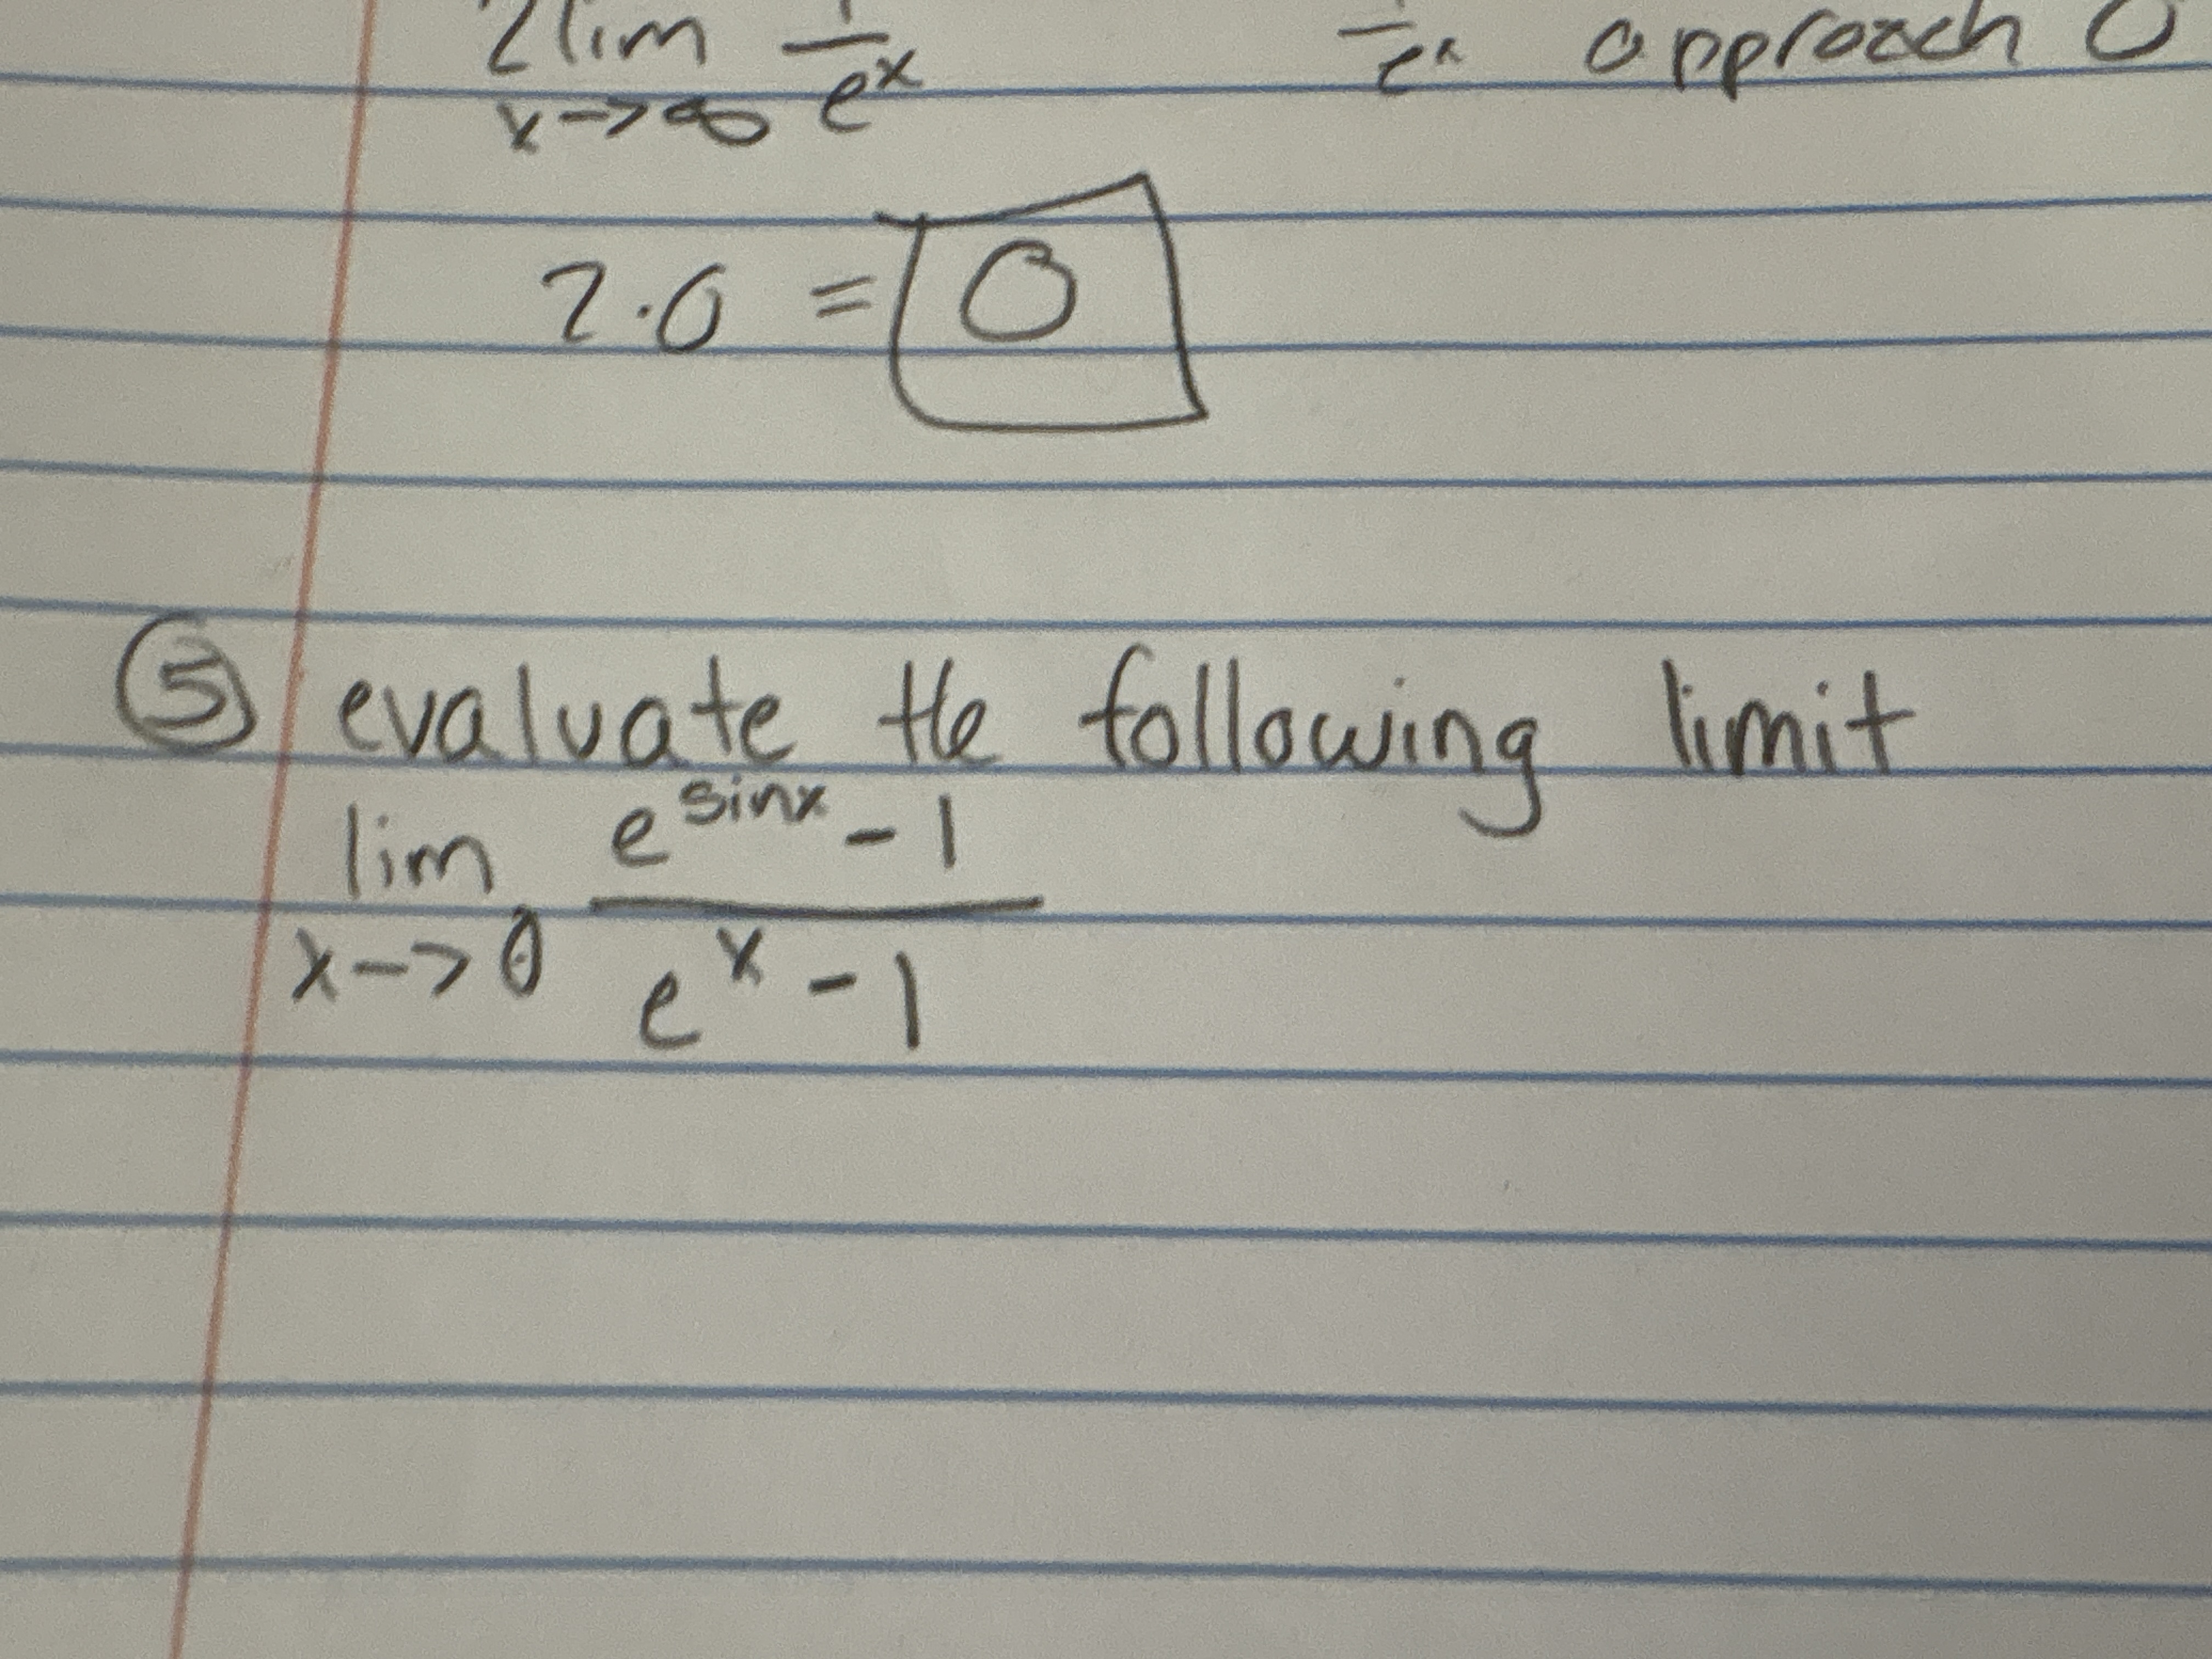 2 lim 1/e^x 1/e^x approach 0
x->∞
2·0 = 0
⑤ evaluate the following limit
lim e^sinx - 1
x->0 e^x - 1